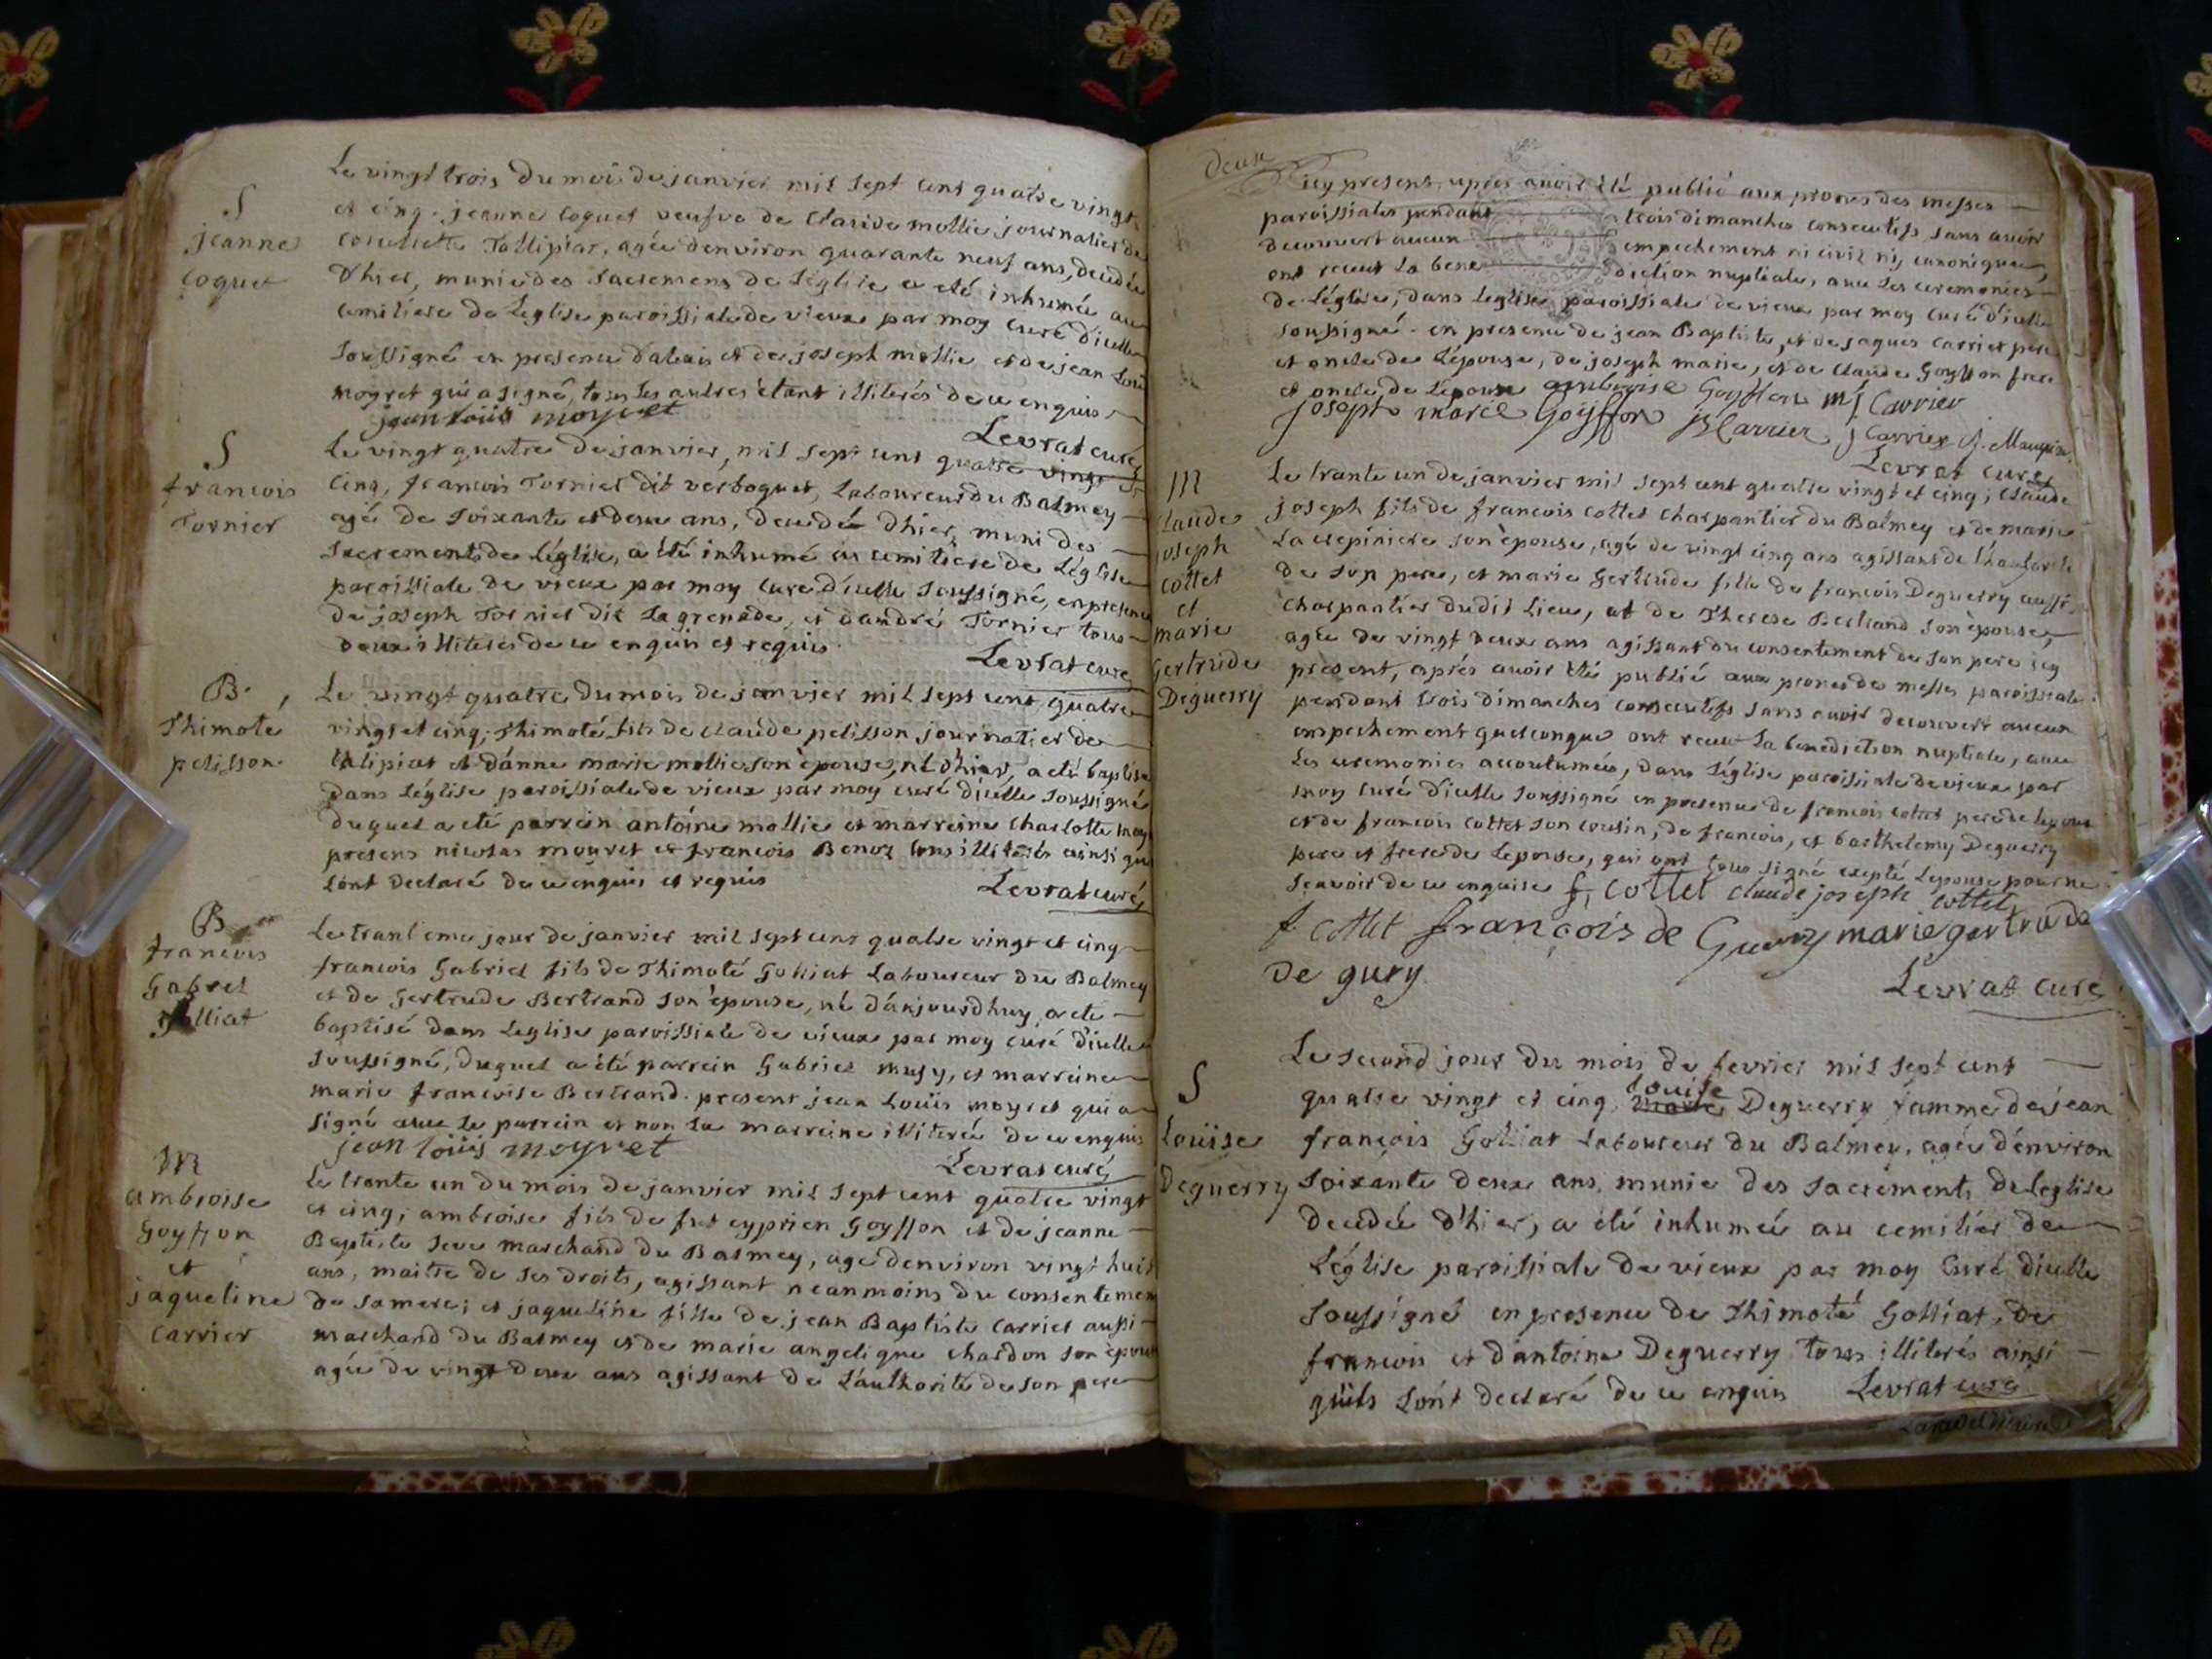 Le vingt trois du mois de janvier mil sept cent quatre vingt
S
jeanne
coquet
et cinq, jeanne coquet veufve de Claude mollie journalier de
Talipiat, agée denviron quarante neuf ans, decedée
d'hier, munie des sacremens de l'église a eté inhumée au
cemitiere de l'eglise paroissiale de vieux par moy curé d'icelle
soussigné en presence et de joseph mollie et de jean Louis
moyret qui a signé, tous les autres étant illiterés de ce enquis
jean loüis moyret
Levrat curé
S
francois
Tornier
Le vingt quatre de janvier, mil sept cent quatre vingt et
cinq, francois Tornier dit verboquet, Laboureur du Balmey
agé de soixante et deux ans, decedé d'hier, muni des
sacrements de l'église, a été inhumé au cemitiere de l'église
paroissiale de vieux par moy curé d'icelle soussigné, en presence
de joseph Tornier dit la grenade, et d'andré Tornier tous
deux illiterés de ce enquis et requis
Levrat curé
B.
Thimoté
pelisson
Le vingt quatre du mois de janvier mil sept cent quatre
vingt et cinq, Thimoté fils de claude pelisson journalier de
talipiat et d'anne marie mollie son épouse, né d'hier, a eté baptisé
dans l'église paroissiale de vieux par moy curé d'icelle soussigné
duquel a eté parrein antoine mollie et marreine charlotte
presens nicolas mouret et francois Benoz tous illiterés ainsi qu
sont declaré de ce enquis et requis
Levrat curé
B
francois
Gabriel
Golliat
Le trentieme jour de janvier mil sept cent quatre vingt et cinq
francois Gabriel fils de Thimoté Golliat Laboureur du Balmey
et de Gertrude Bertrand son épouse, né d'aujourdhuy a eté
baptisé dans l'eglise paroissiale de vieux par moy curé d'icelle
soussigné, duquel a été parrein Gabriel musy, et marreine
marie francoise Bertrand. present jean Louis moyret qui a
signé avec le parrein et non la marreine illiterée de ce enquis
jean loüis moyret
Levrat curé
M
ambroise
Goyffon
et
jaqueline
Carrier
Le trente un du mois de janvier mil sept cent quatre vingt
et cinq, ambroise fils de feu cyprien Goyffon et de jeanne
Baptiste Seve marchand du Balmey, agé denviron vingt huit
ans, maitre de ses droits, agissant neanmoins du consentement
de sa mere; et jaqueline fille de jean Baptiste Carrier aussi
marchand du Balmey et de marie angelique chardon son epouse
agée de vingt deux ans agissant de l'authorité de son pere
Deux
icy present, apres avoir eté publié aux prones des messes
paroissiales pendant trois dimanches consecutifs sans avoir
decouvert aucun empechement ni civil ny canonique,
ont receut la bene diction nuptiale, avec les ceremonies
de l'église, dans l'eglise paroissiale de vieux par moy curé d'icelle
soussigné. en presence de jean Baptiste, et de jaques Carrier pere
et oncle de l'épouse, de joseph marie, et de claude Goyffon frere
et oncle, de l'époux ambroise Goyffon Carrier
joseph marie Goyffon JB Carrier J Carrier
Levrat curé
M
Claude
joseph
cottet
et
marie
gertrude
Deguerry
Le trante un de janvier mil sept cent quatre vingt et cinq; claude
joseph fils de francois cottet charpantier du Balmey et de marie
La crepiniere son épouse, agé de vingt cinq ans agissant de l'authorité
de son pere, et marie Gertrude fille de francois Deguerry aussi
charpantier dudit Lieu, et de Therese Bertrand son épouse,
agée de vingt deux ans agissant du consentement de son pere icy
present, aprés avoir eté publié aux prones de messes paroissiale
pendant trois dimanches consecutifs sans avoir decouvert aucun
empechement quelconque ont receu la benediction nuptiale, avec
les ceremonies accoutumées, dans l'église paroissiale de vieux par
moy curé d'icelle soussigné en presence de francois cottet pere de lepoux
et de francois cottet son cousin, de francois, et barthelemy Deguerry
pere et frere de l'epouse, qui ont tous signé excepté l'epouse pour ne
scavoir de ce enquise f, cottet claude joseph cottet
f cottet françois de Guerry marie gertrude
De gury
Levrat curé
S
Loüise
Deguerry
Le second jour du mois de fevrier mil sept cent
quatre vingt et cinq, Louise Deguerry famme de jean
françois Golliat Laboureur du Balmey, agée d'environ
soixante deux ans, munie des sacrements de l'eglise
decedée d'hier, a eté inhumée au cemitier de
L'église paroissiale de vieux par moy Curé d'icelle
soussigné en presence de Thimoté Golliat, de
francois et d'antoine Deguerry tous illiterés ainsi
qu'ils sont declaré de ce enquis Levrat curé